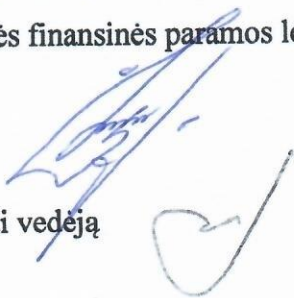 ės finansinės paramos
i vedėją